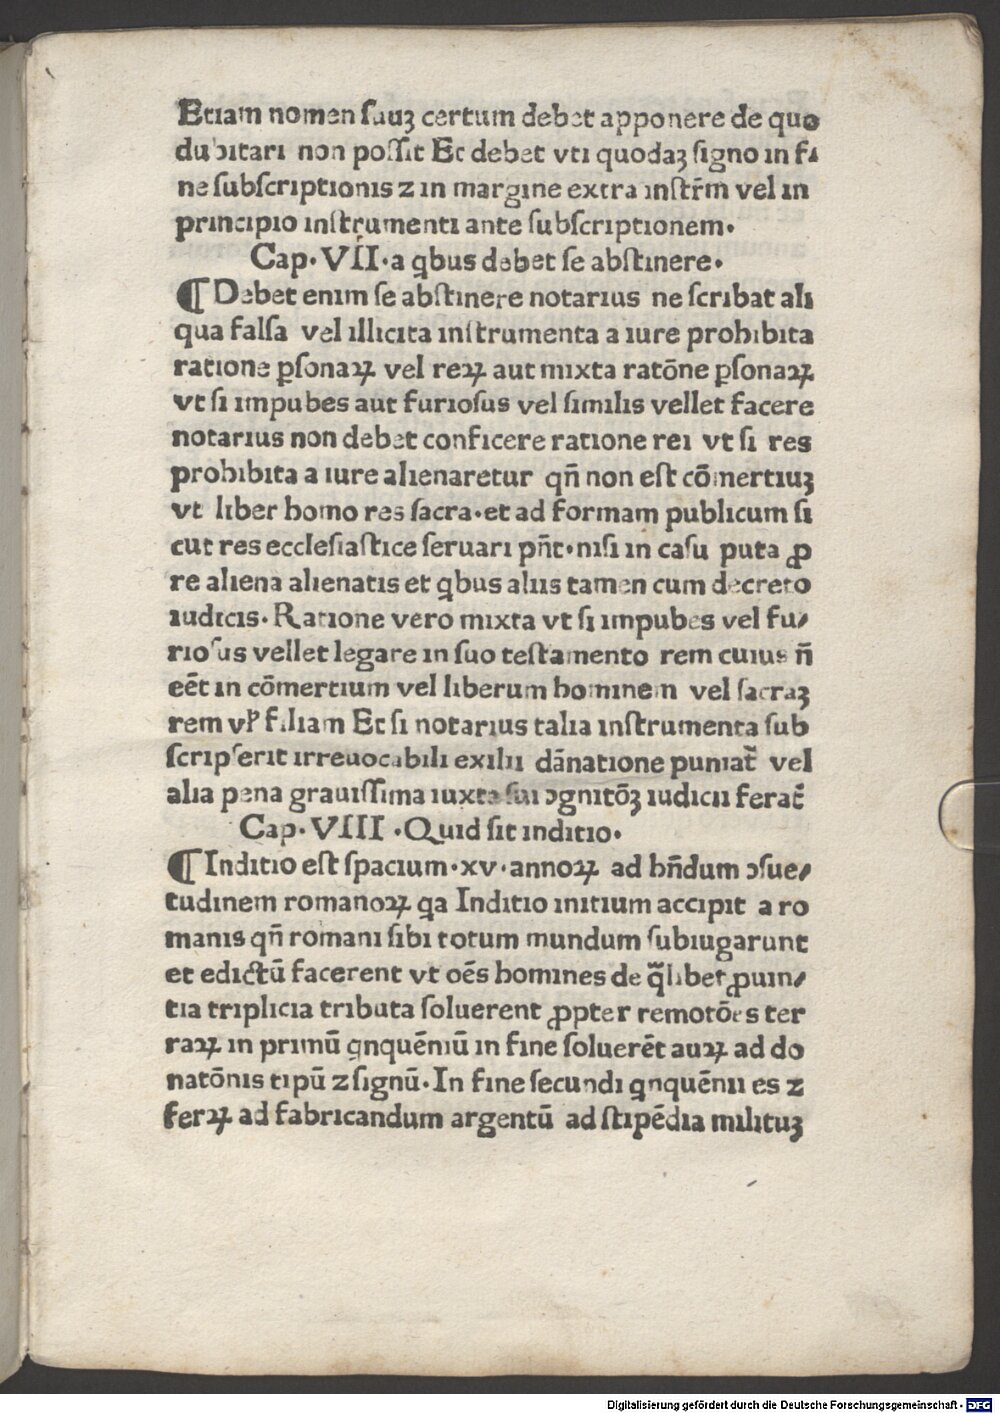 Etiam nomen ſuuꝫ certum debet apponere de quo
dubitari non poſſit Et debet vti quodaꝫ ſigno in fi
ne ſubſcriptionis ⁊ in margine extra inſtr̃m vel in
principio inſtrumenti ante ſubſcriptionem·
Cap·VII·a qͥbus debet ſe abſtinere·
¶Debet enim ſe abſtinere notarius ne ſcribat ali
qua falſa vel illicita inſtrumenta a iure prohibita
ratione ꝑſonaꝝ vel reꝝ aut mixta ratōne ꝑſonaꝝ
vt ſi impubes aut furioſus vel ſimilis vellet facere
notarius non debet conficere ratione rei vt ſi res
prohibita a iure alienaretur qñ non eſt cōmertiuꝫ
vt liber homo res ſacra·et ad formam publicum ſi
cut res eccleſiaſtice ſeruari pñt·niſi in caſu puta ꝓ
re aliena alienatis et qͥbus aliis tamen cum decreto
iudicis·Ratione vero mixta vt ſi impubes vel fu⸗
rioſus vellet legare in ſuo teſtamento rem cuius ñ
eēt in cōmertium vel liberum hominem vel ſacraꝫ
rem vꝉ filiam Et ſi notarius talia inſtrumenta ſub
ſcripſerit irreuocabili exilii dānatione puniat᷑ vel
alia pena grauiſſima iuxta ſui ꝯgnitōꝫ iudicii ferat᷑
Cap·VIII·Quid ſit inditio·
¶Inditio eſt ſpacium·xv·annoꝝ ad hñdum ꝯſue⸗
tudinem romanoꝝ qͥa Inditio initium accipit a ro
manis qñ romani ſibi totum mundum ſubiugarunt
et edictū facerent vt oēs homines de qͣ̄libet ꝓuin⸗
tia triplicia tributa ſoluerent ꝓpter remotōes ter
raꝝ in primū qͥnquēniū in fine ſoluerēt auꝝ ad do
natōnis tipū ⁊ ſignū·In fine ſecundi qͥnquēnii es ⁊
ferꝝ ad fabricandum argentū ad ſtipēdia milituꝫ
Digitalisierung gefördert durch die Deutsche Forschungsgemeinschaft · DFG